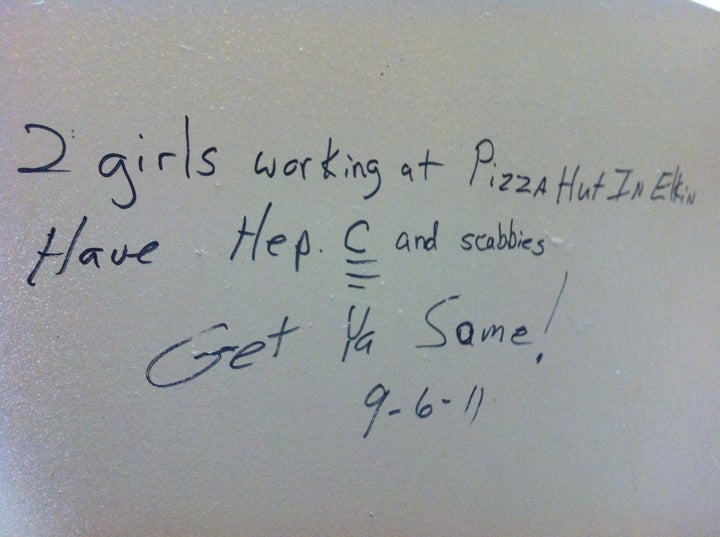 2 girls working at Pizza Hut In Elkin
Have Hep. C and scabbies
Get Ya Some!
9-6-11